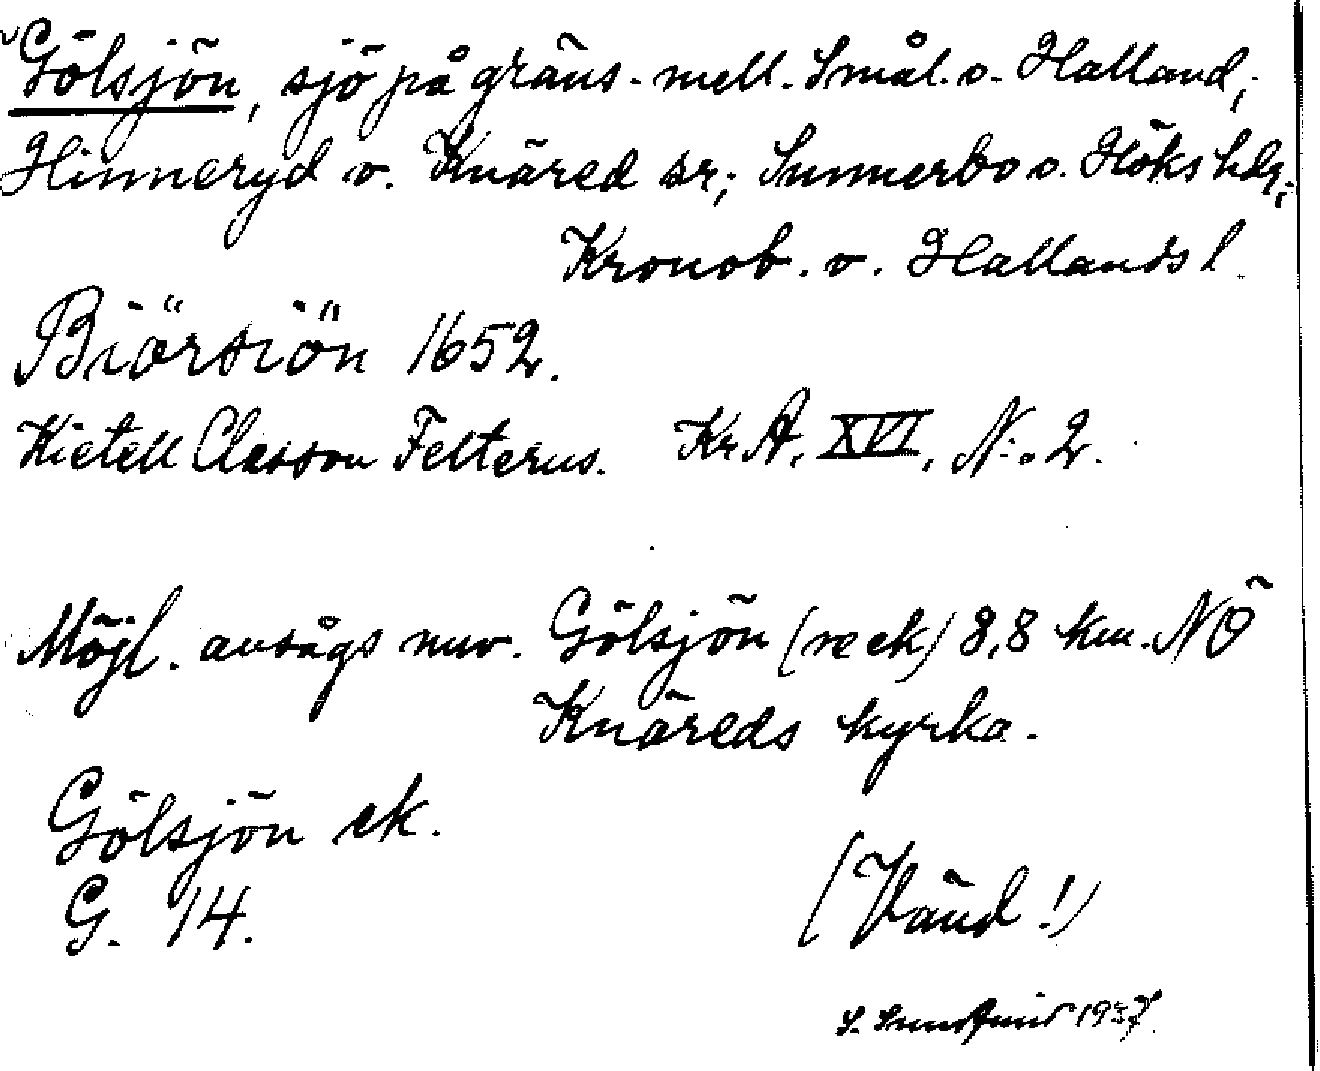 Gölsjön, sjö på gräns. mell. Smål. o. Halland,
Hinneryd o. Knäred sr; Sunnerbo o. Höks hdr;
Kronob. o. Hallands l.
Biörsiön 1652.
Kietell Classon Felterus. KrA, XVI, N:o 2.
Möjl. avságs nuv. Gölsjön (reck) 8,8 km. NÖ
Knäreds kyrka.
Gölsjön ek.
G. 14.
(Vänd!)
S. 1937.